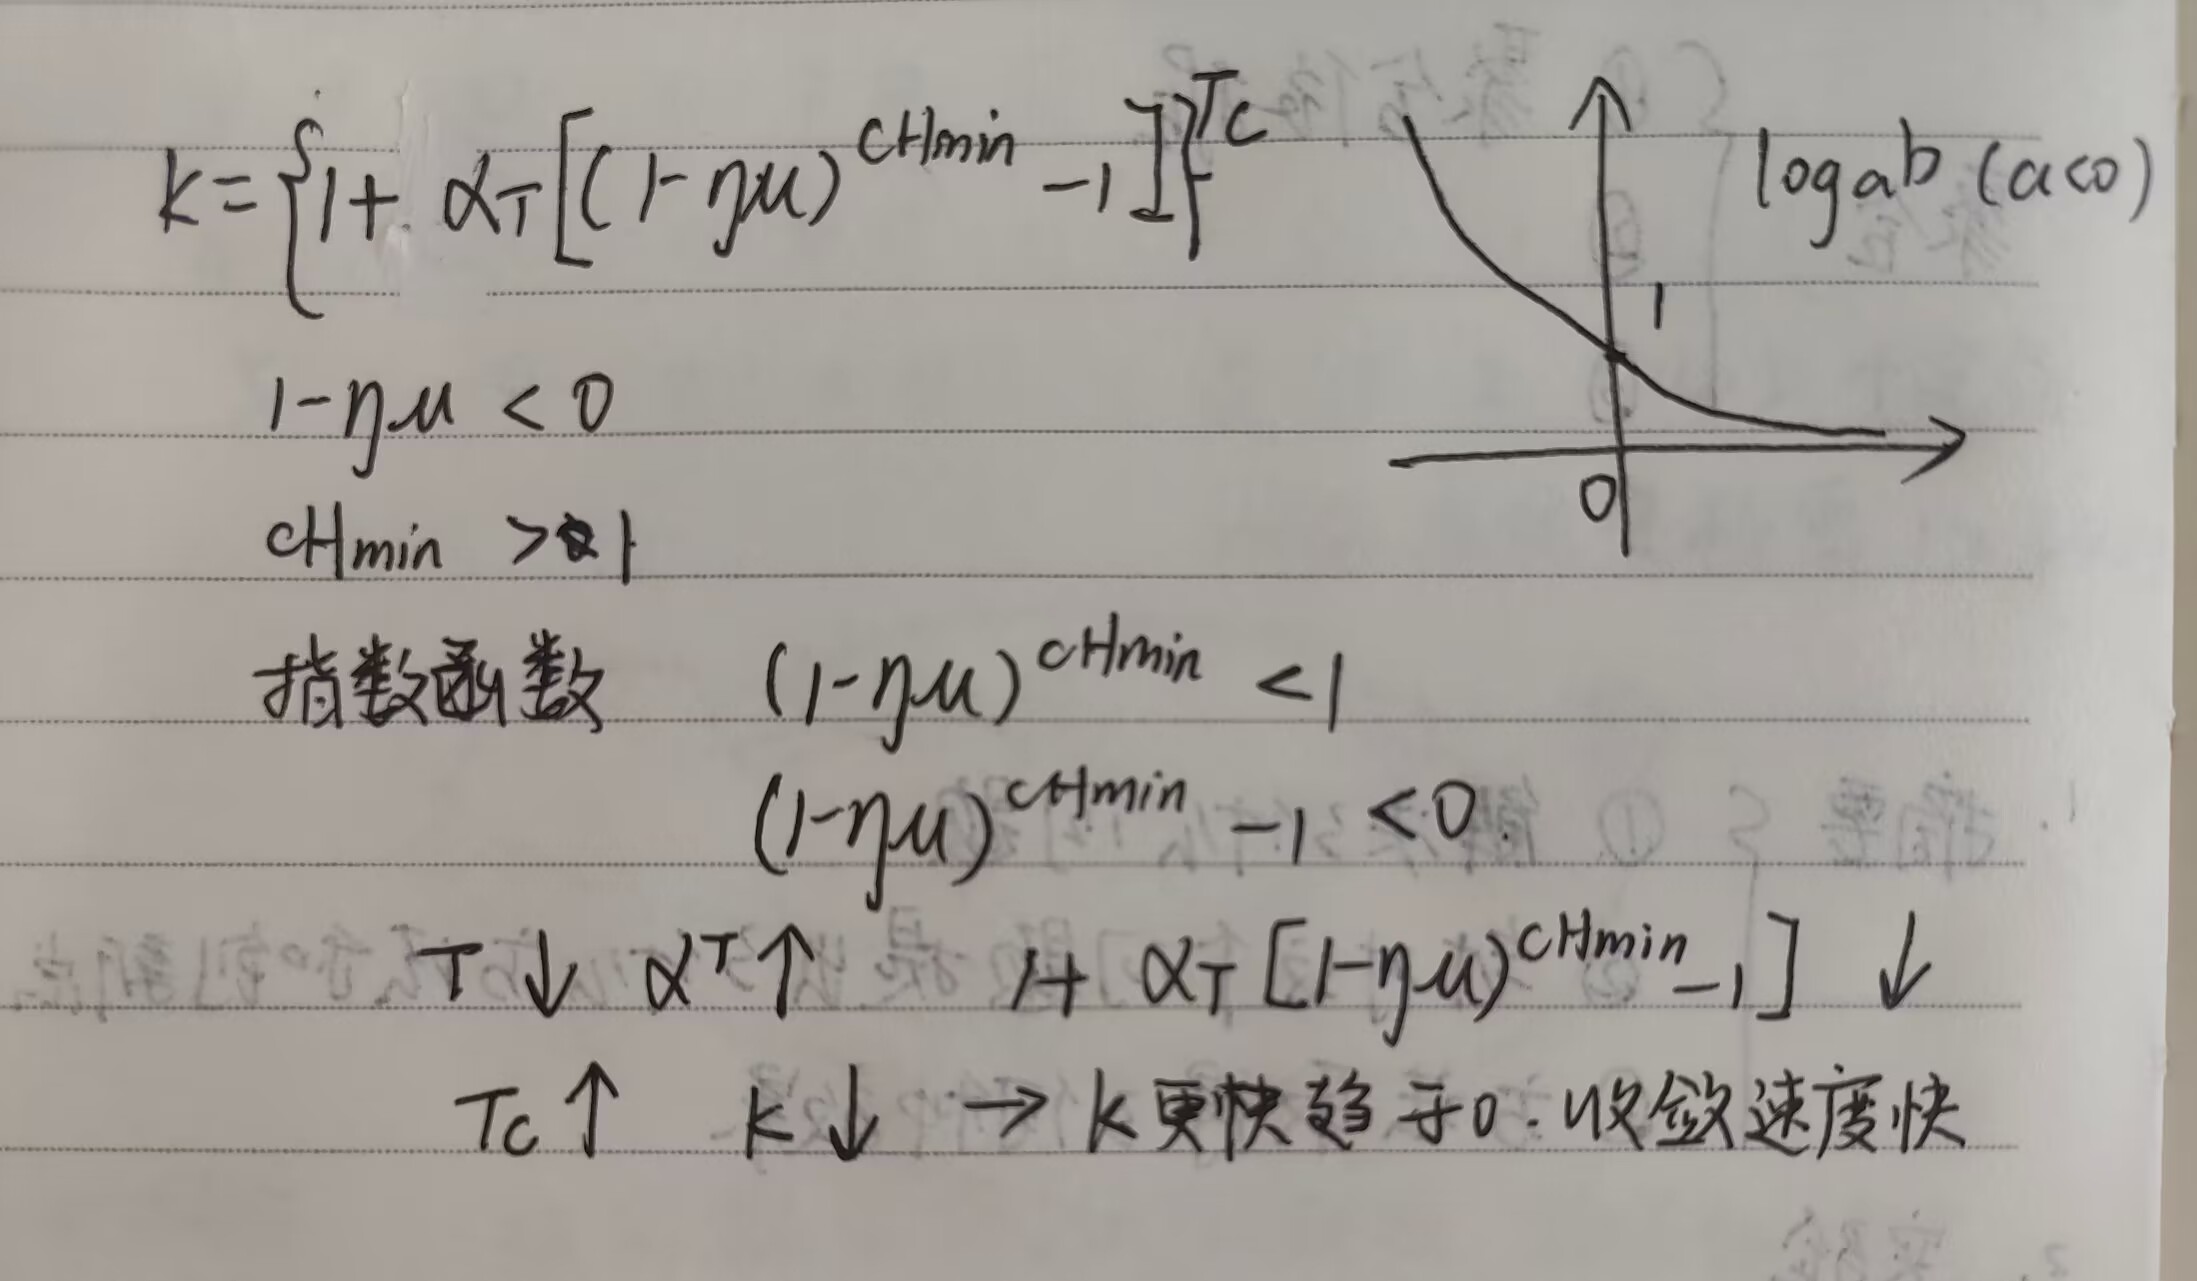 k={1+ α_T[(1-ημ)^{cHmin} -1]}^{Tc}
log ab (a<0)
1
0
1-ημ < 0
cHmin > 1
指数函数 (1-ημ)^{cHmin} <1
(1-ημ)^{cHmin} -1 <0.
T↓ α^T↑ 1+ α_T [1-ημ)^{cHmin} -1] ↓
Tc↑ k↓ → k更快趋于0.收敛速度快